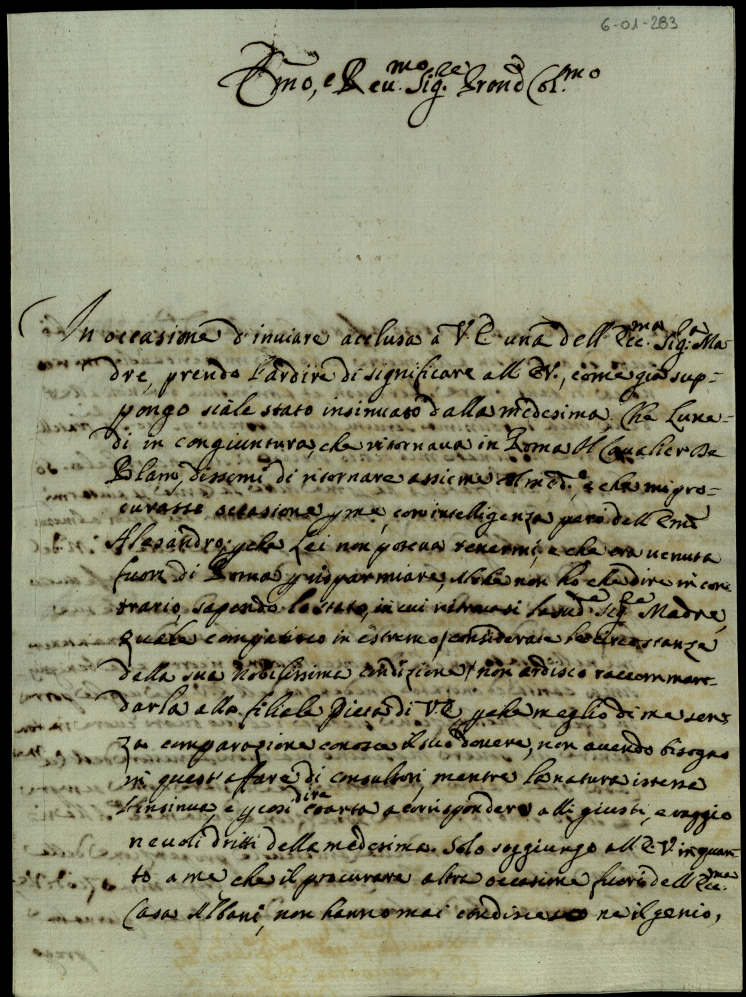 6-01-283
Emo, e Reu.mo Sig.re Prone Col.mo
In occasione d'inuiare acclusa à V E una dell'Ecc.ma Sig.ra Ma-
dre, prendo l'ardire di significare all'E.V., come già sup-
pongo siale stato insinuato dalla medesima, che Lune-
di in congiuntura, che ritornaua in Roma il Caualier De
Blanò, dissemi di ritornare assieme col med.o, e che mi pro-
curassi occasione p me, con intelligenza però dell'Emo
Alesandro, pche Lei non poteua tenermi, e che era uenuta
fuori di Roma p risparmiare, al che non hò che dire in con-
trario, sapendo lo stato, in cui ritrouasi la sud.a Sig.ra Madre,
quale compatisco in estremo/considerate le circostanze
della sua nobilissima condizione/non ardisco raccomman-
darla alla filiale Pietà di V E, pche meglio di me sen-
za comparazione conosce il suo douere, non auendo bisogno
in quest'affare di consultori, mentre la natura istessa
l'insinua, e p cosi dire coarta a corrispondere alli giusti, e raggio
neuoli dritti della medesima. Solo soggiungo all'E.V. in quan-
to a me che il procurare altra occasione fuori dell'Ecc.ma
Casa Albani, non hanno mai condisceso ne il genio,